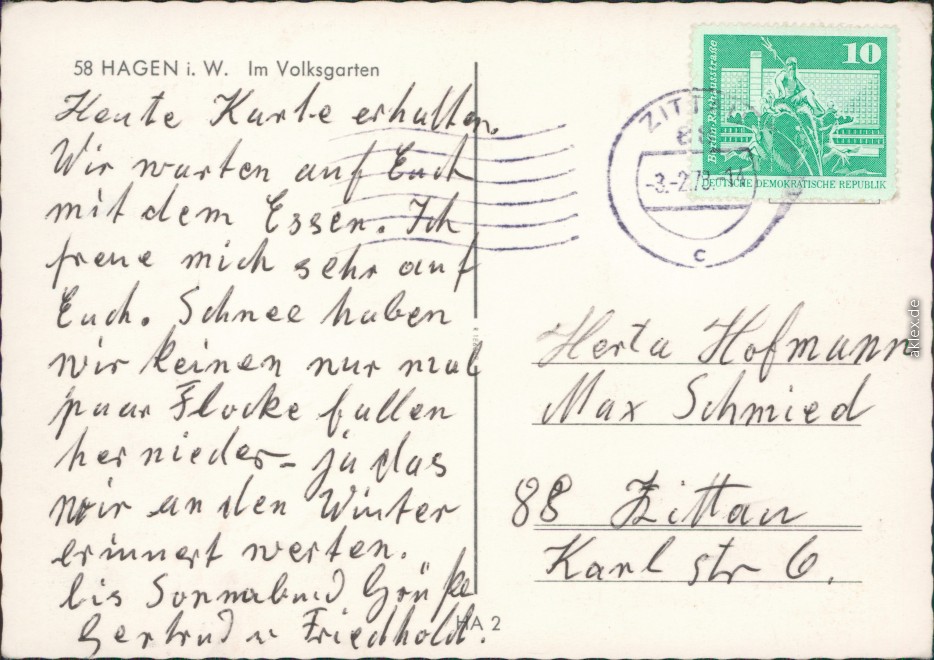 58 HAGEN i. W. Im Volksgarten
Heute Karte erhalten.
Wir warten auf Euch
mit dem Essen. Ich
freue mich sehr auf
Euch. Schnee haben
wir keinen nur mal
paar Flocke fallen
hernieder - ja das
wir an den Winter
erinnert werten.
bis Sonnabend Grüße
Gertrud u Friedhold.
HA 2
10
Berlin-Rathausstraße
DEUTSCHE DEMOKRATISCHE REPUBLIK
ZITT
-3.-2.78.-14
c
Herta Hofmann
Max Schmied
88 Zittau
Karl str 6.
aklex.de